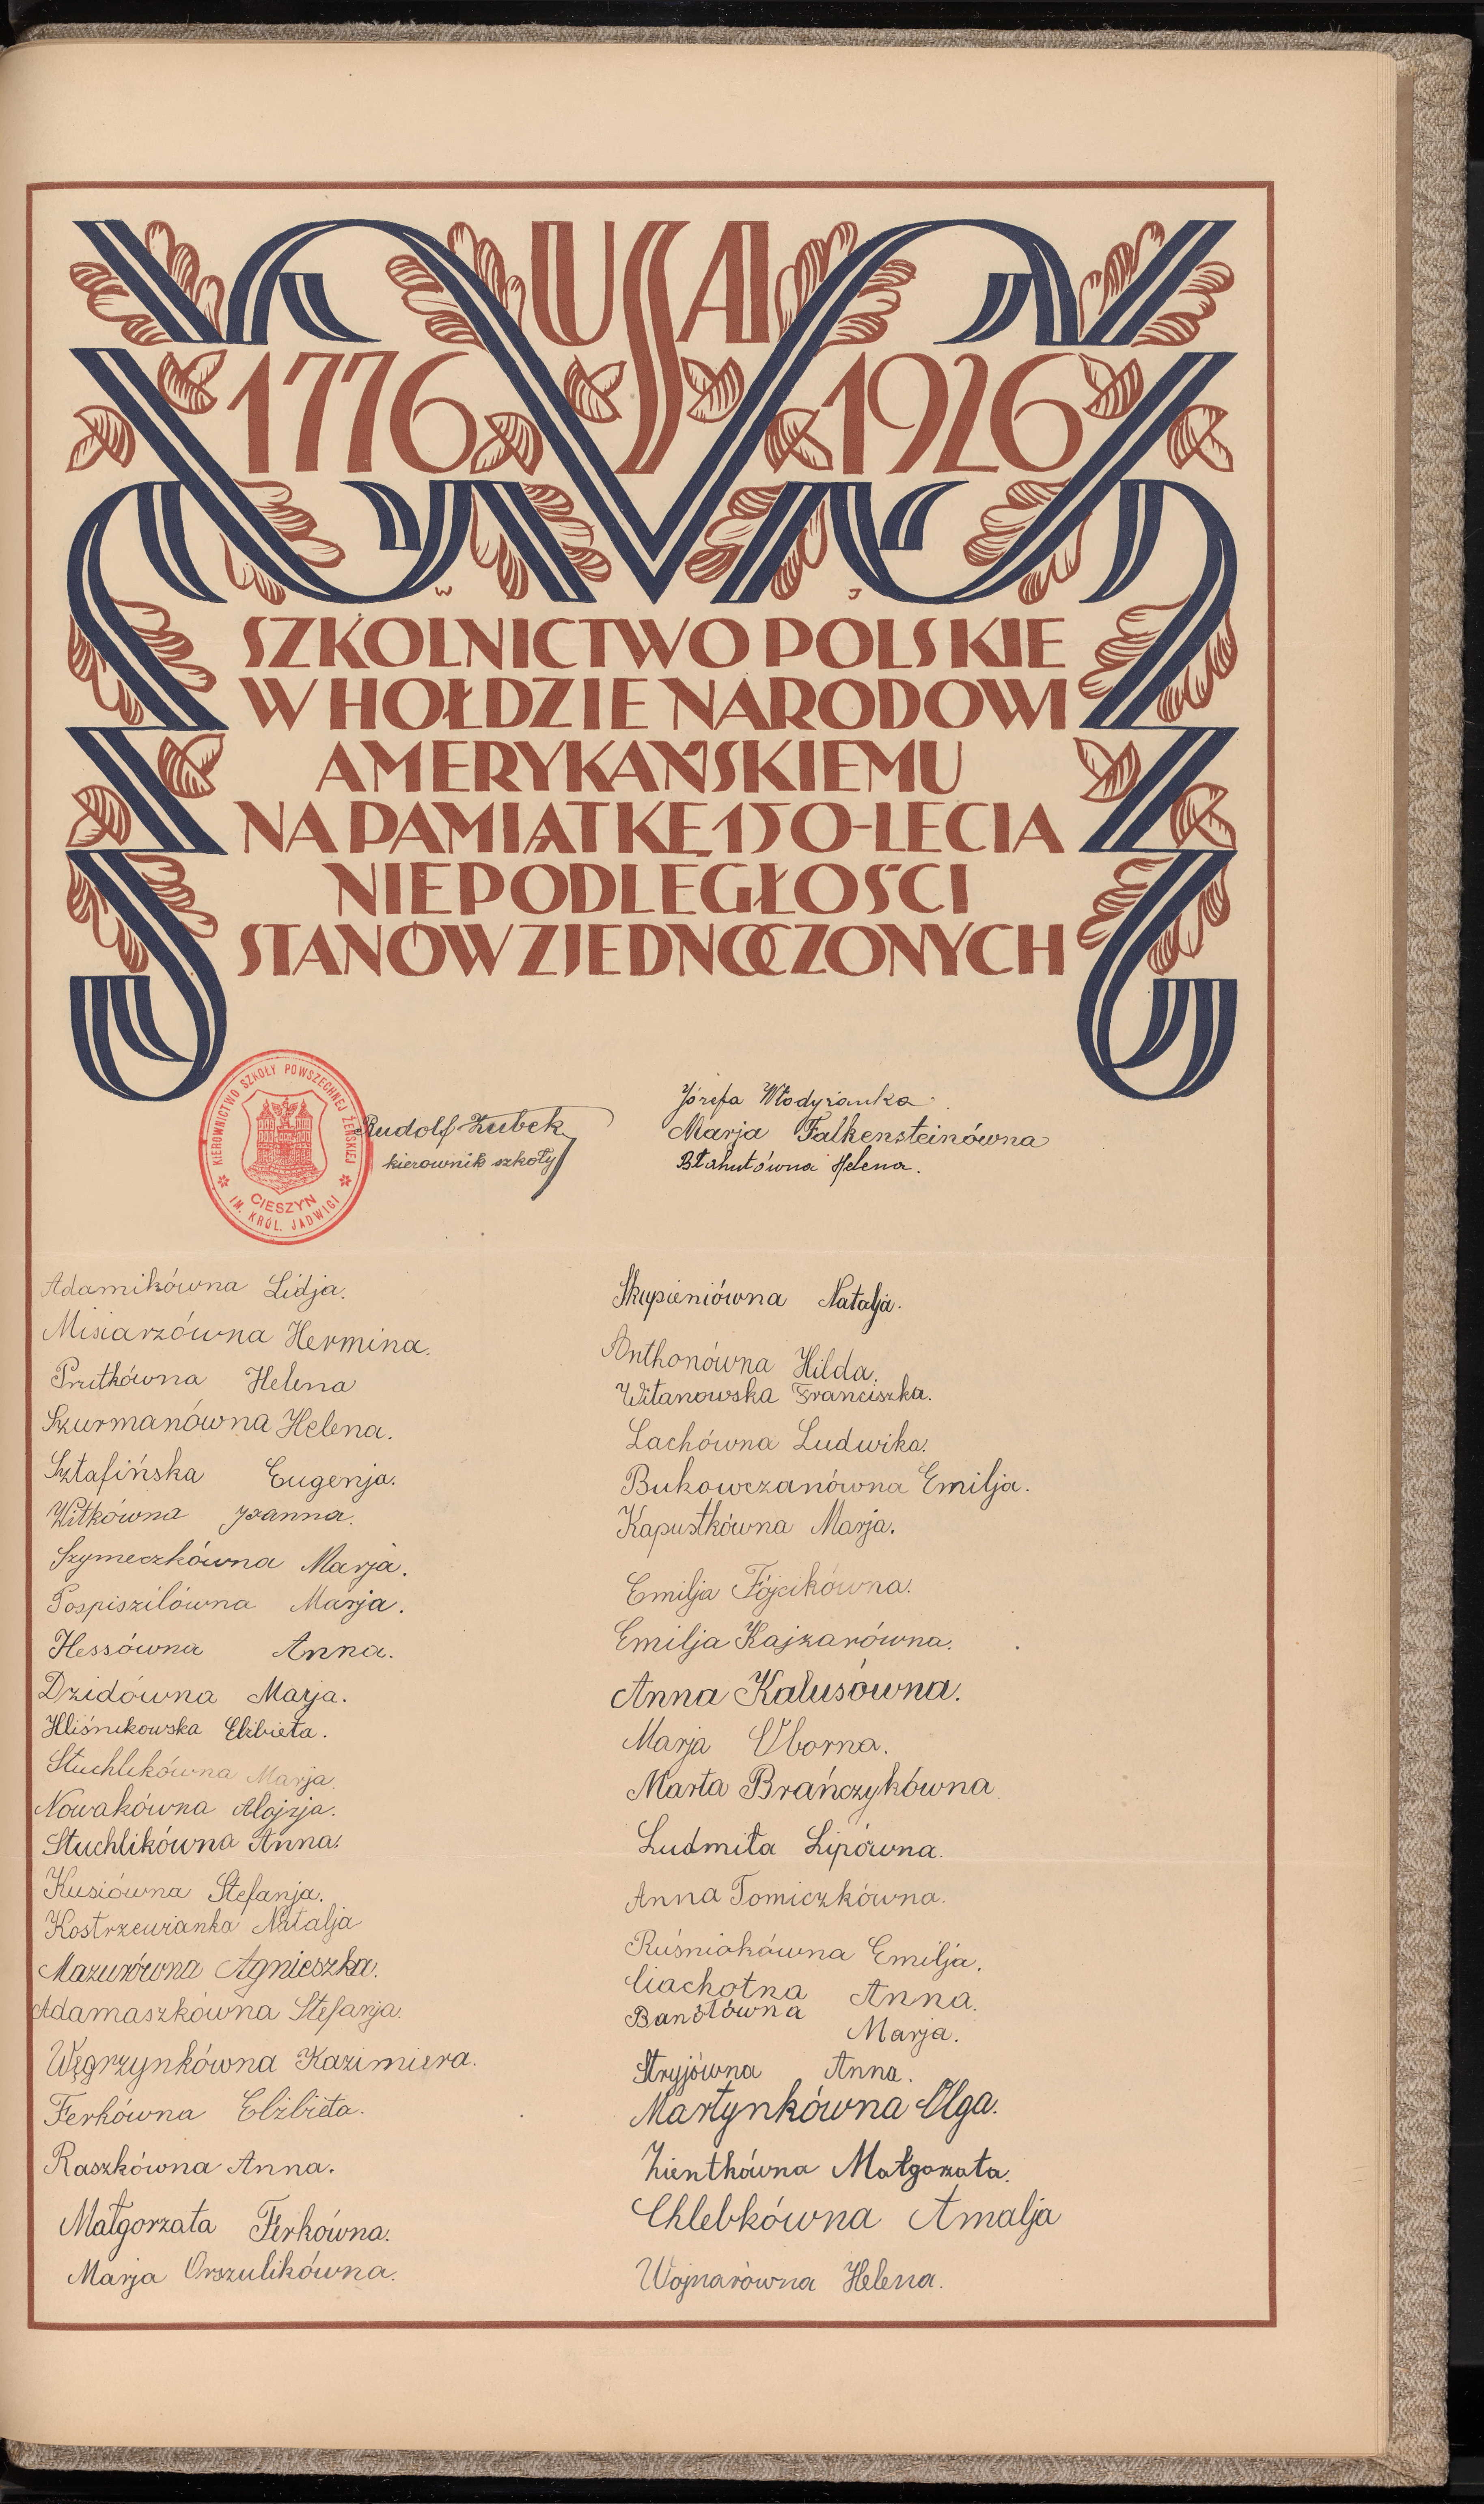 USA
1776 1926
W J
SZKOLNICTWO POLSKIE
W HOŁDZIE NARODOWI
AMERYKAŃSKIEMU
NA PAMIĄTKĘ 150-LECIA
NIEPODLEGŁOŚCI
STANÓW ZJEDNOCZONYCH
KIEROWNICTWO SZKOŁY POWSZECHNEJ ŻEŃSKIEJ
CIESZYN
IM. KRÓL. JADWIGI
Rudolf Zubek
kierownik szkoły
Józefa Włodyżanka
Marja Falkensteinówna
Błahutówna Helena.
Adamikówna Lidja.
Misiarzówna Hermina.
Prutkówna Helena
Szurmanówna Helena.
Sztafińska Eugenja.
Witkówna Joanna.
Szymeczkówna Marja.
Pospiszilówna Marja.
Hessówna Anna.
Dzidówna Marja.
Hliśnikowska Elżbieta.
Stuchlikówna Marja.
Nowakówna Alojzja.
Stuchlikówna Anna.
Kusiówna Stefanja.
Kostrzewianka Natalja
Mazurówna Agnieszka.
Adamaszkówna Stefanja.
Węgrzynkówna Kazimiera.
Ferkówna Elżbieta.
Raszkówna Anna.
Małgorzata Ferkówna.
Marja Orszulikówna.
Skupieniówna Natalja.
Anthonówna Hilda.
Witanowska Franciszka.
Lachówna Ludwika.
Bukowczanówna Emilja.
Kapustkówna Marja.
Emilja Fójcikówna.
Emilja Kajzarówna.
Anna Kalusówna.
Marja Oborna.
Marta Brańczykówna
Ludmiła Lipówna.
Anna Tomiczkówna.
Ruśniokówna Emilja.
Ciachotna Anna.
Bandłówna Marja.
Stryjówna Anna.
Martynkówna Olga.
Zientkówna Małgorzata.
Chlebkówna Amalja
Wojnarówna Helena.